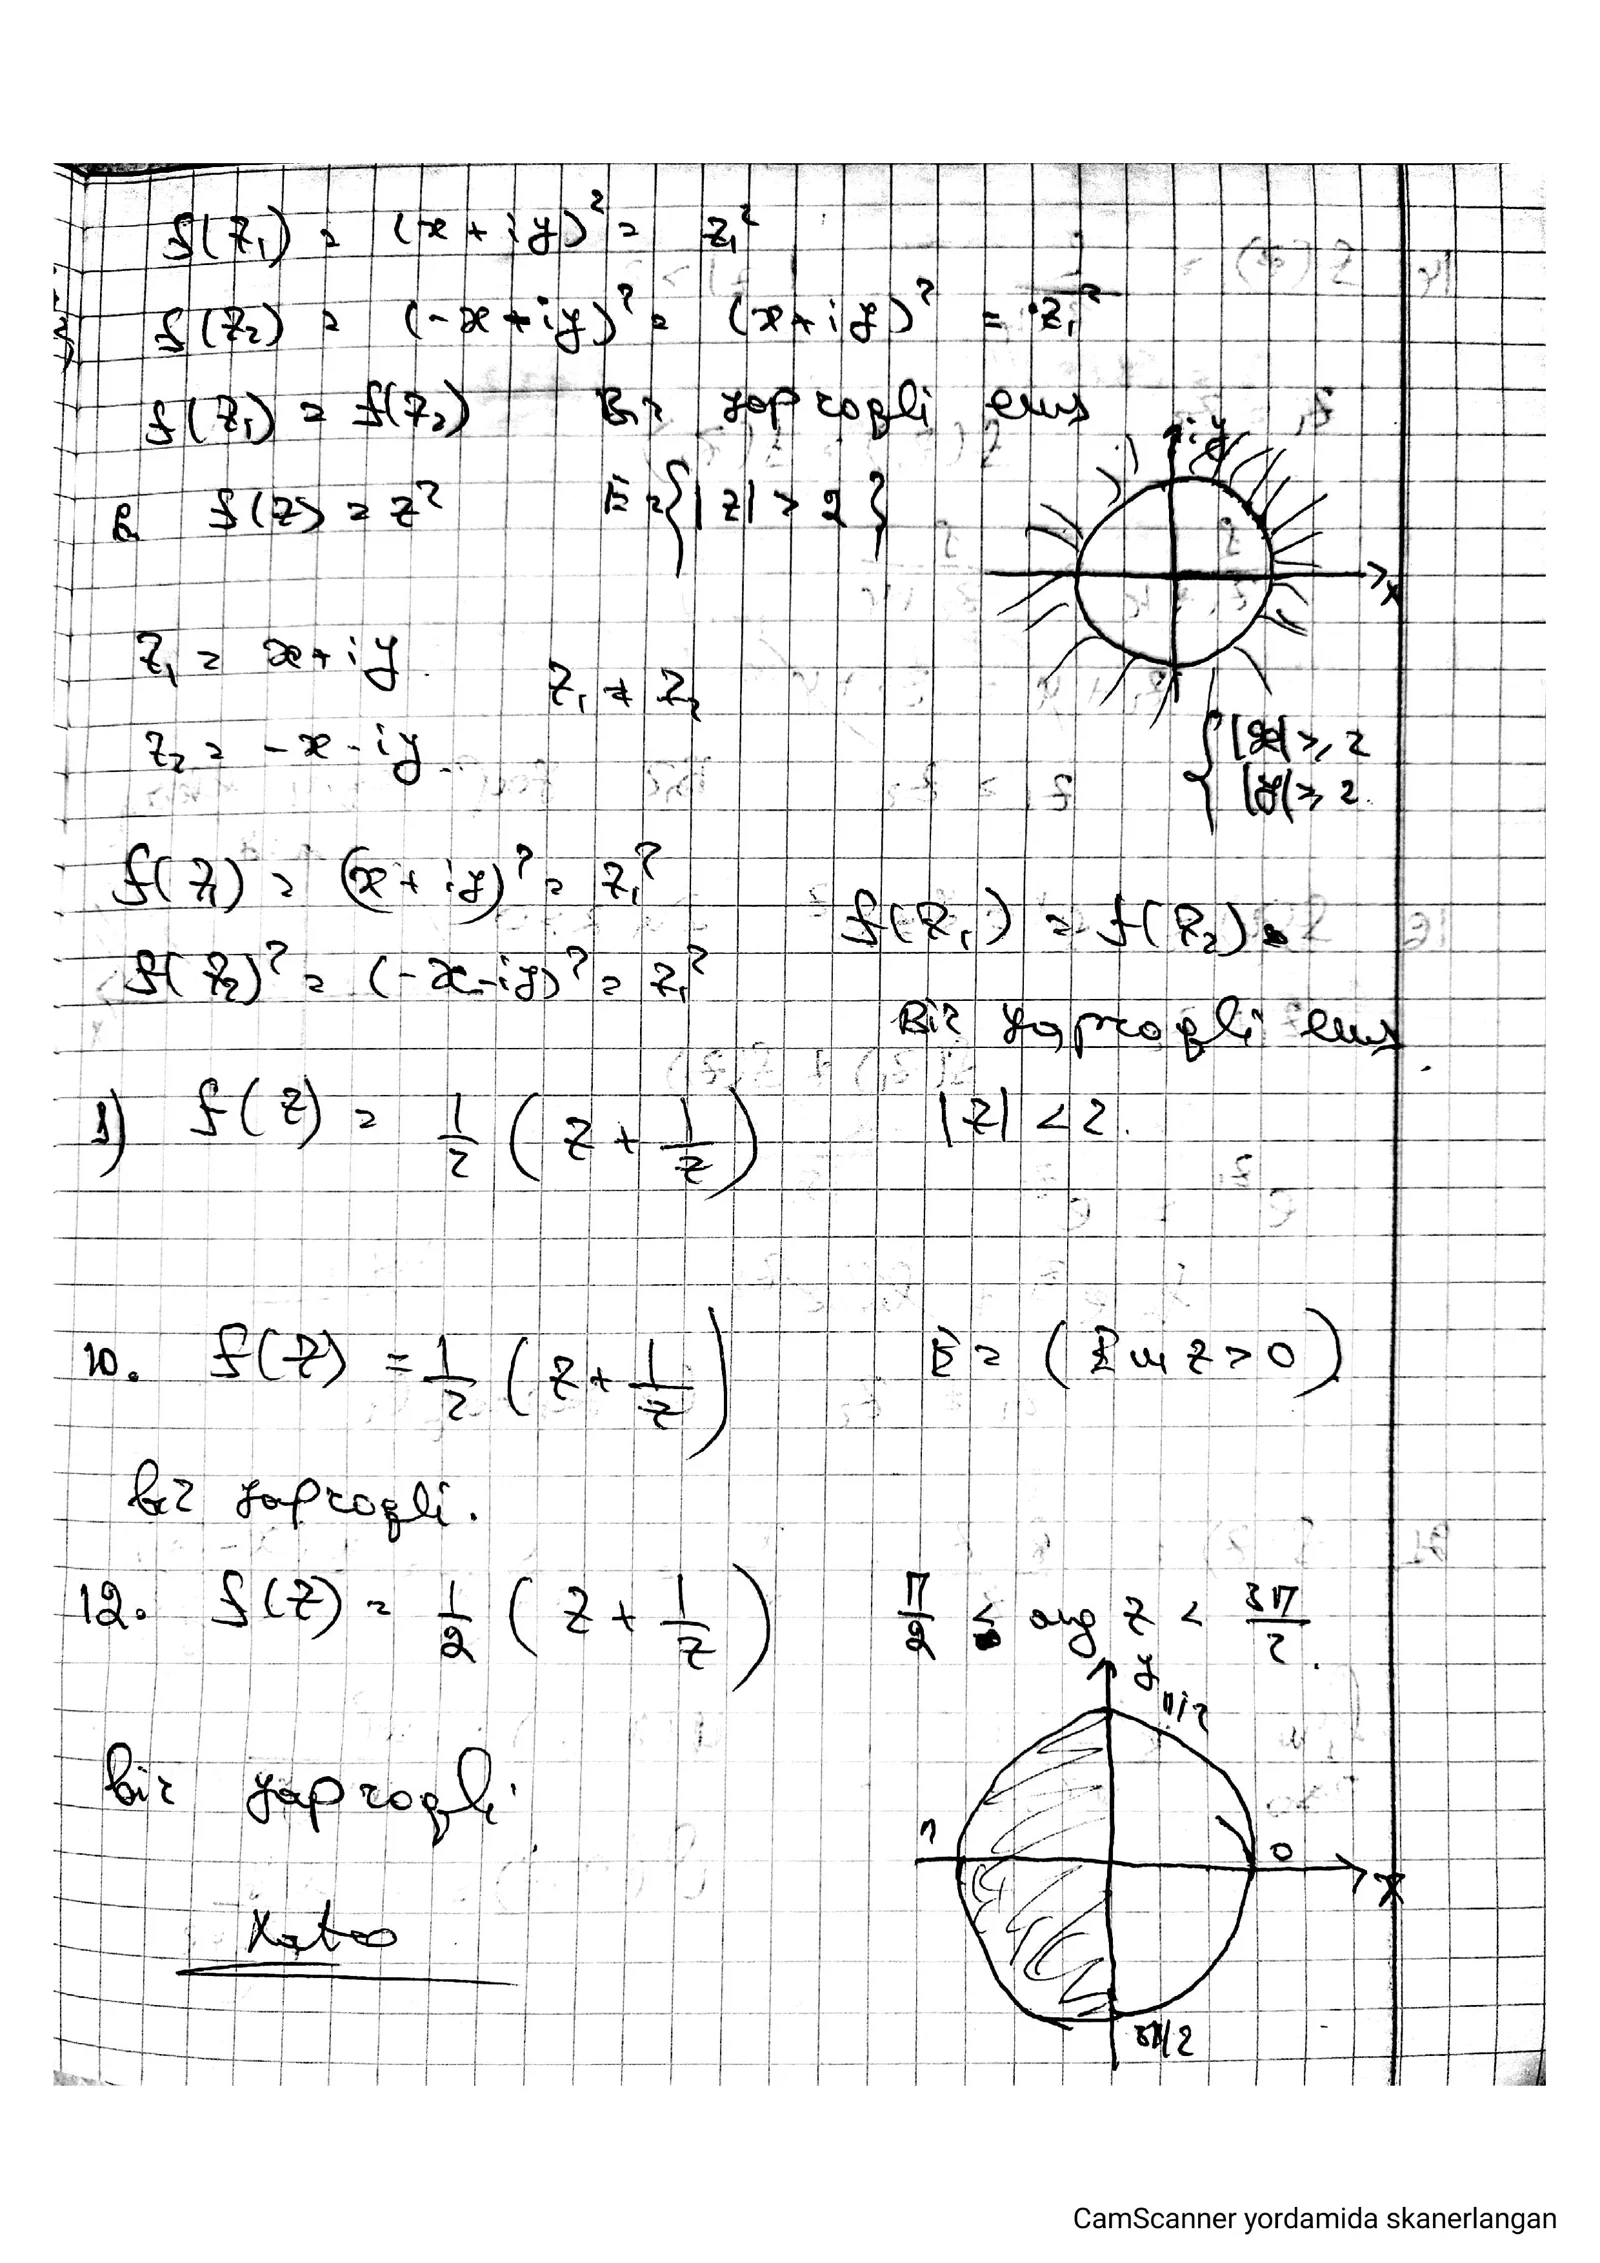 f(z₁) = (x + iy)² = z₁²
f(z₂) = (-x + iy)² = (x + iy)² = z₁²
f(z₁) = f(z₂) Bir yaproqli emas
iy
8. f(z) = z² E = {|z| > 2}
x
z₁ = x + iy
z₁ ≠ z₂
z₂ = -x - iy
{ |x| ≥ 2
|y| ≥ 2
f(z₁) = (x + iy)² = z₁²
f(z₁) = f(z₂).
f(z₂)² = (-x - iy)² = z₁²
Bir yaproqli emas
f(z) = 1/2 (z + 1/z) |z| < 2.
10. f(z) = 1/2 (z + 1/z) E = (Im z > 0)
bir yaproqli.
12. f(z) = 1/2 (z + 1/z) π/2 < arg z < 3π/2.
y
π/2
bir yaproqli.
π
0
x
Xato
3π/2
CamScanner yordamida skanerlangan